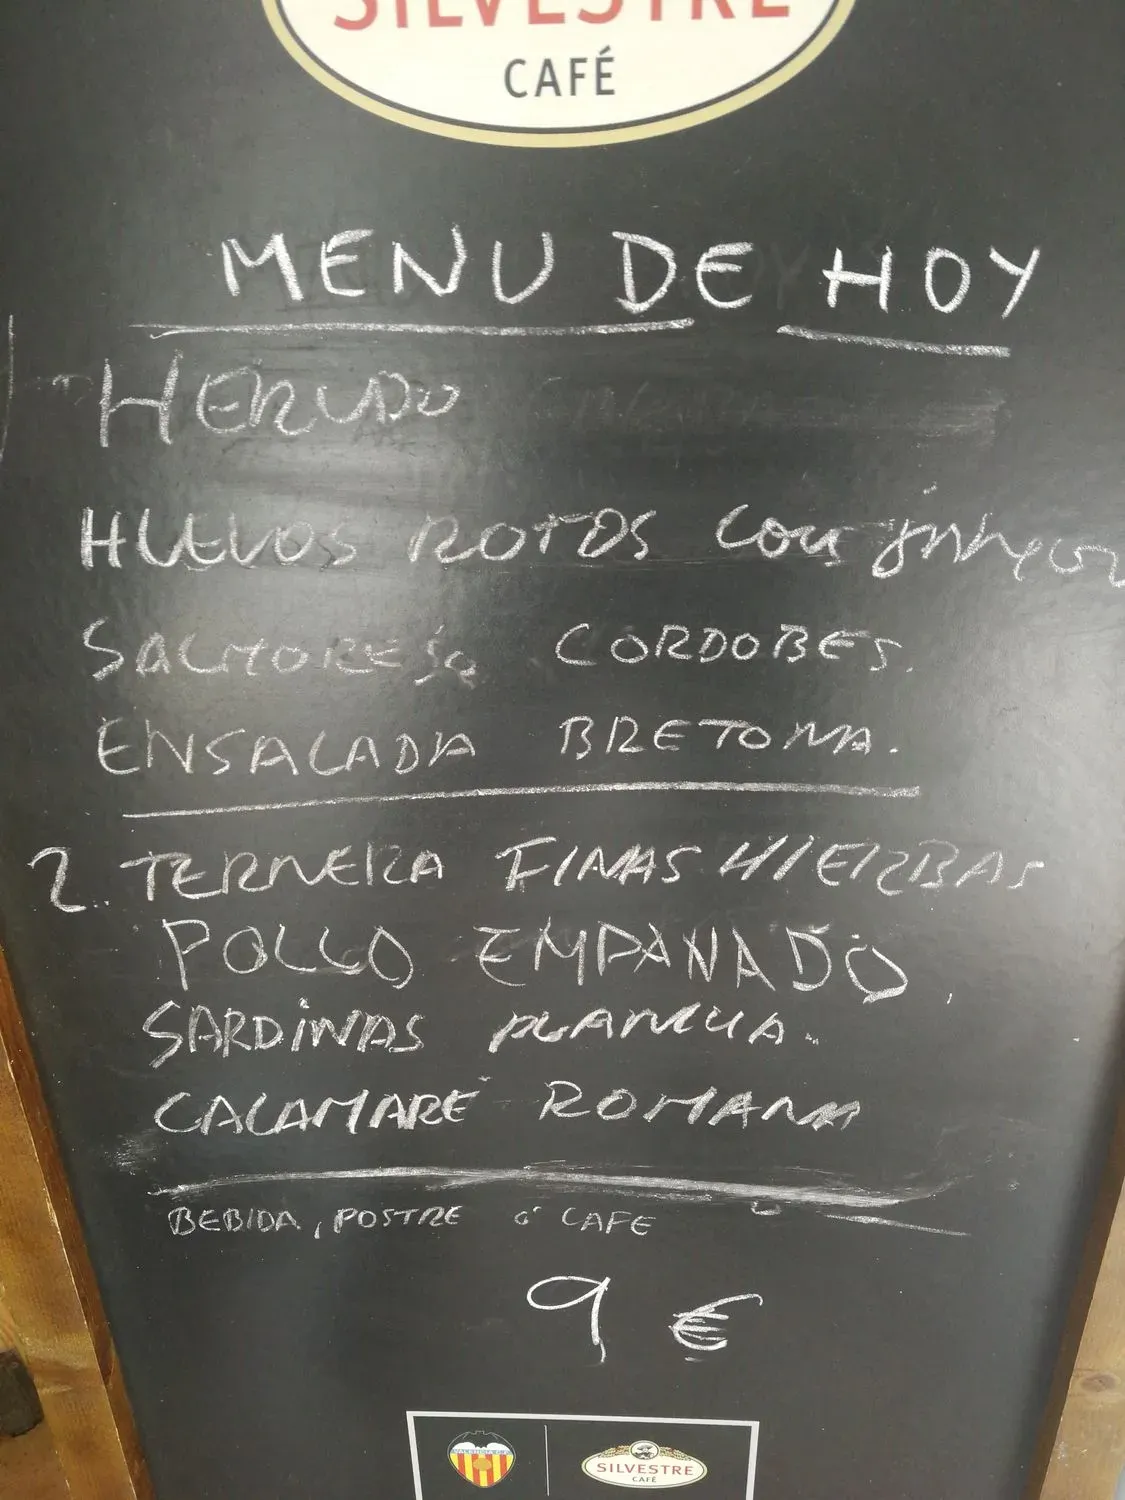 SILVESTRE
CAFÉ
MENU DE HOY
HERVIDO
HUEVOS ROTOS con
SALMOREJO CORDOBES.
ENSALADA BRETONA.
2. TERNERA FINAS HIERBAS
POLLO EMPANADO.
SARDINAS PLANCHA.
CALAMARE ROMANA
BEBIDA, POSTRE ó CAFE
9 €
VALENCIA C.F.
SILVESTRE
CAFÉ